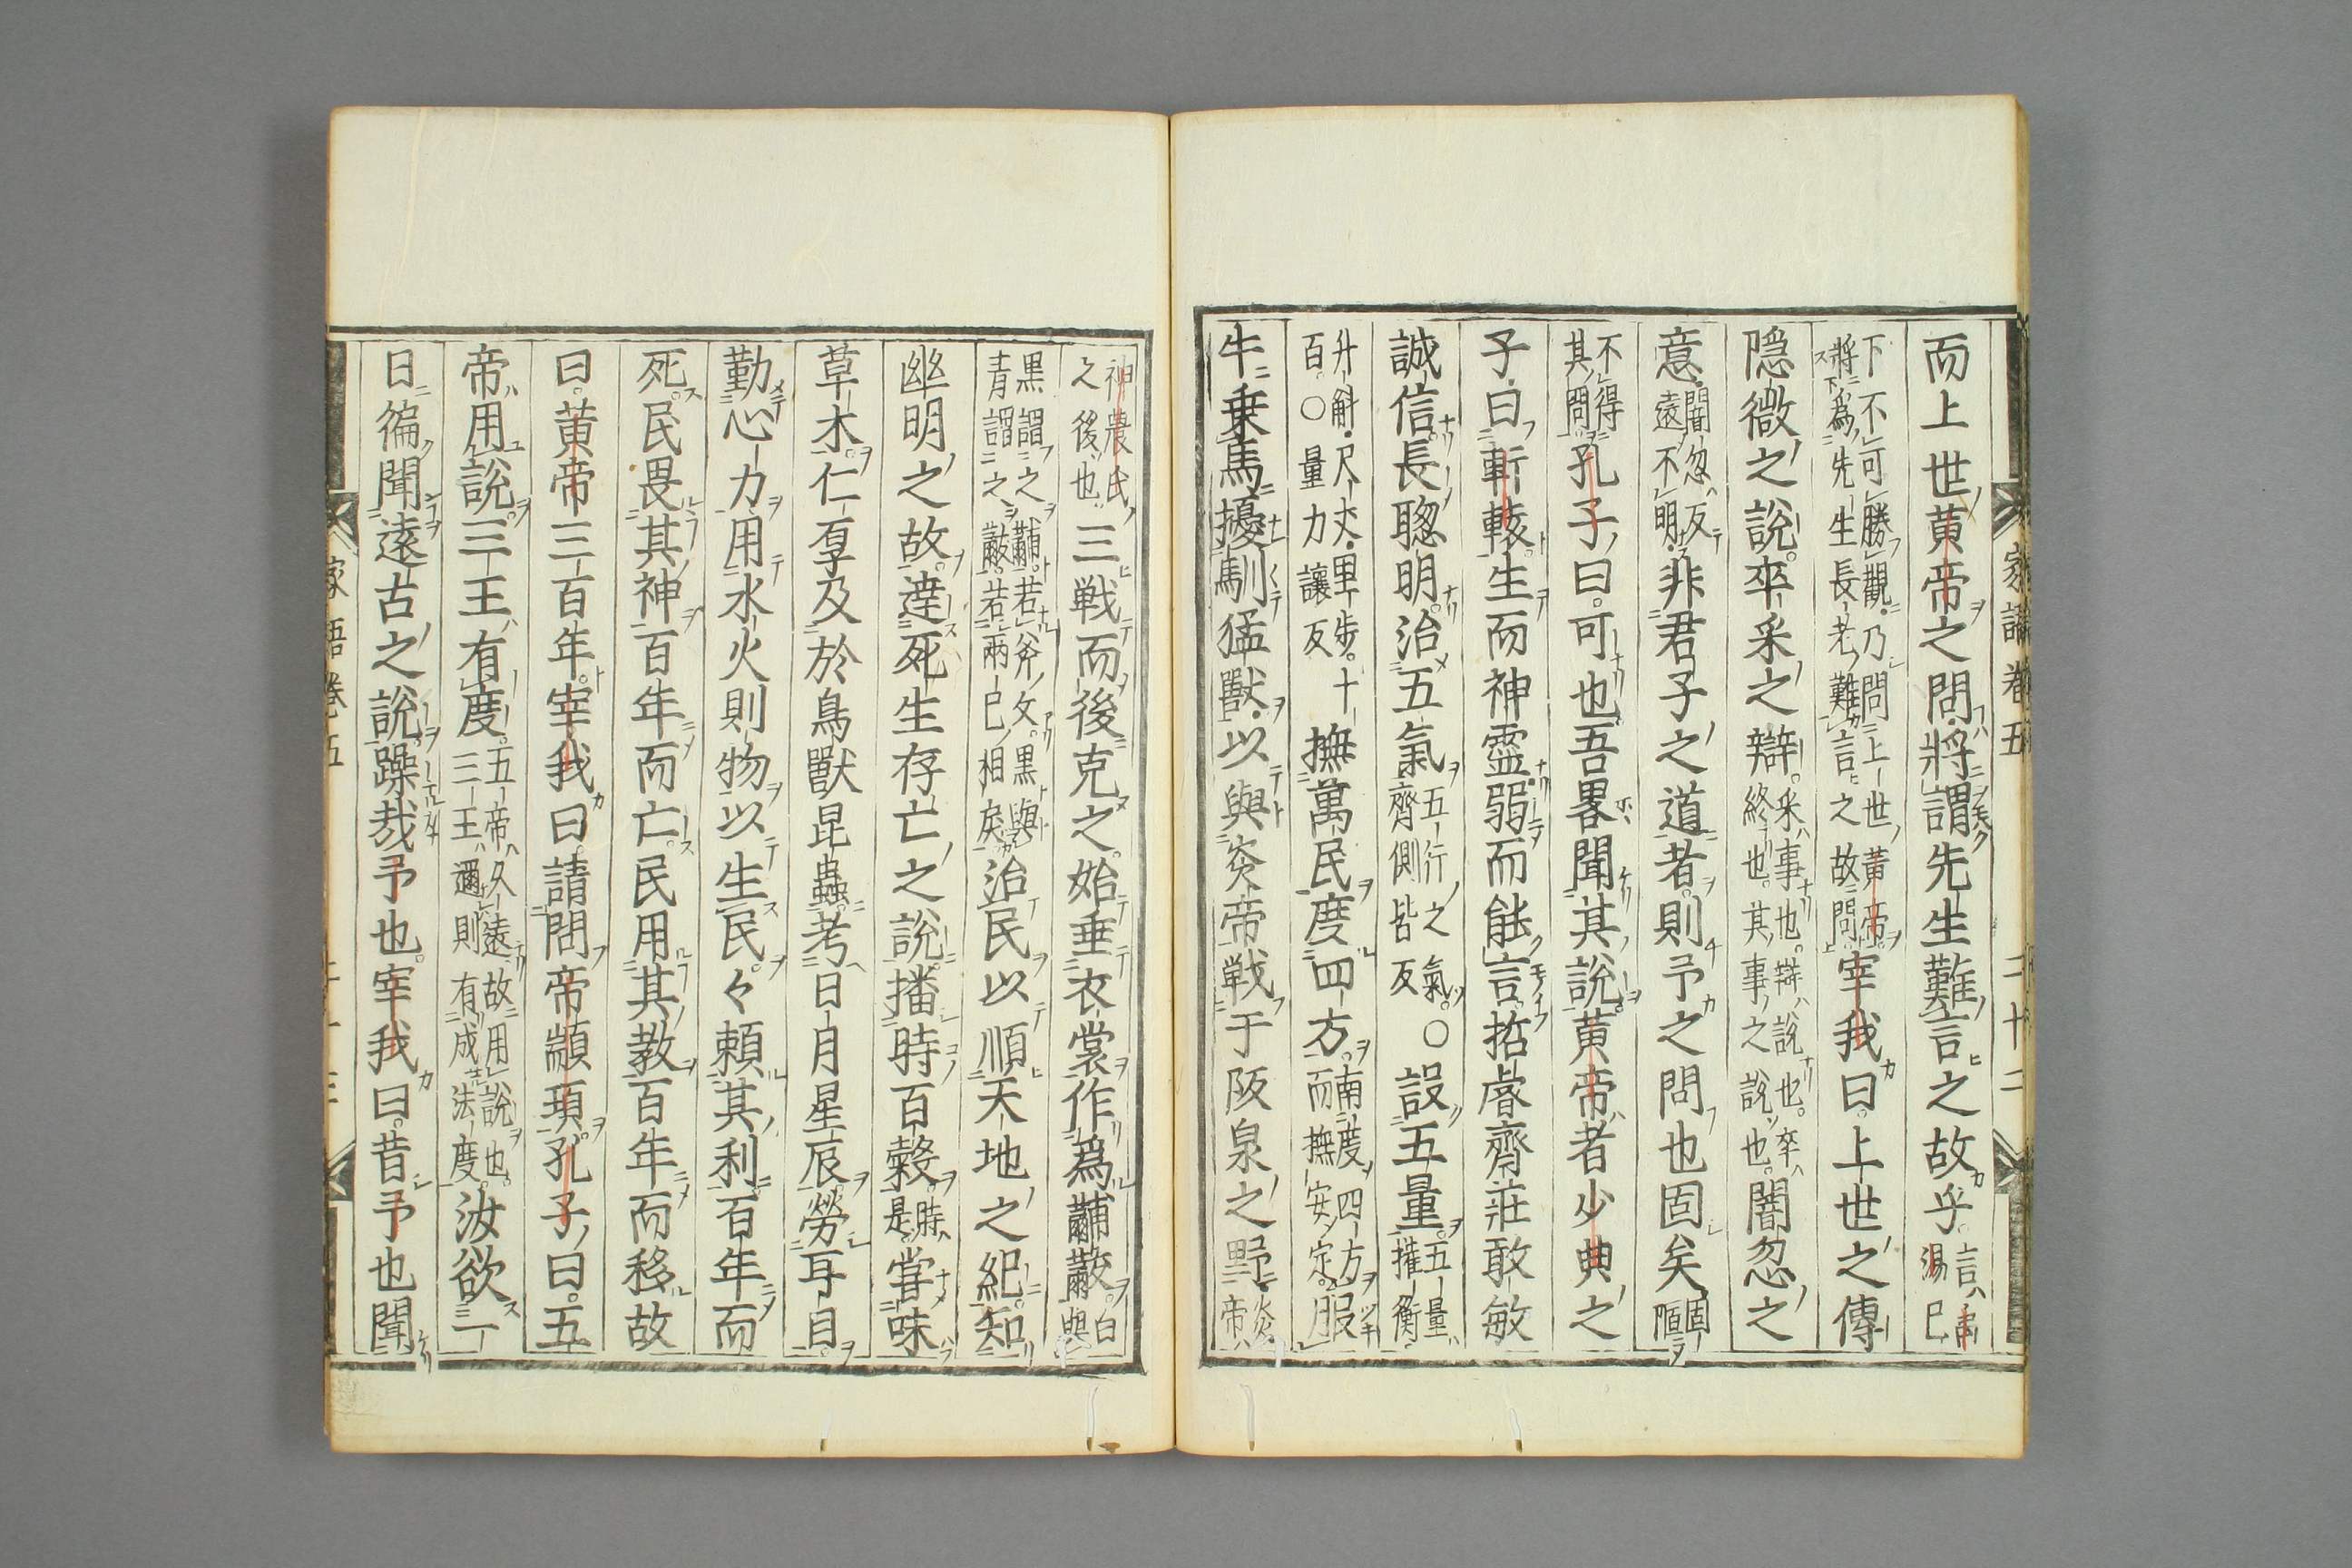 家語卷五　二十二
而上世黄帝之問將謂先生難言之故乎。言禹湯已
下不可勝觀乃問上世黄帝。將爲先生長老難言之故問。宰我曰。上世之傳
隱微之說。卒采之辯。采事也。辯說也。卒終也。其事之說也。闇忽之
意。闇忽反遠不明。非君子之道者。則予之問也固矣固陋
不得其問孔子曰。可也吾畧聞其說。黄帝者少典之
子。曰軒轅。生而神靈弱而能言。哲睿齊莊敢敏
誠信。長聰明。治五氣五行之氣。齊側皆反。○設五量。五量權衡
升斛尺丈里步。十百。○量力讓反撫萬民度四方。南度四方而撫安定。服
牛乗馬擾馴猛獸。以與炎帝戦于阪泉之野炎帝
神農氏之後也三戦而後克之。始垂衣裳作爲黼黻。白與
黒謂之黼。若斧文。黒與青謂之黻。若兩巳相戾治民以順天地之紀。知
幽明之故。達死生存亡之說。播時百穀。時是。嘗味
草木。仁厚及於鳥獸昆蟲。考日月星辰勞耳目
勤心力用水火則物以生民。々頼其利百年而
死。民畏其神百年而亡。民用其教百年而移故
曰。黄帝三百年。宰我曰。請問帝顓頊。孔子曰。五
帝用說。三王有度。五帝久遠故用說也。三王邇則有成法度。汝欲一
日徧聞遠古之說。躁哉予也。宰我曰。昔予也聞
家語卷五